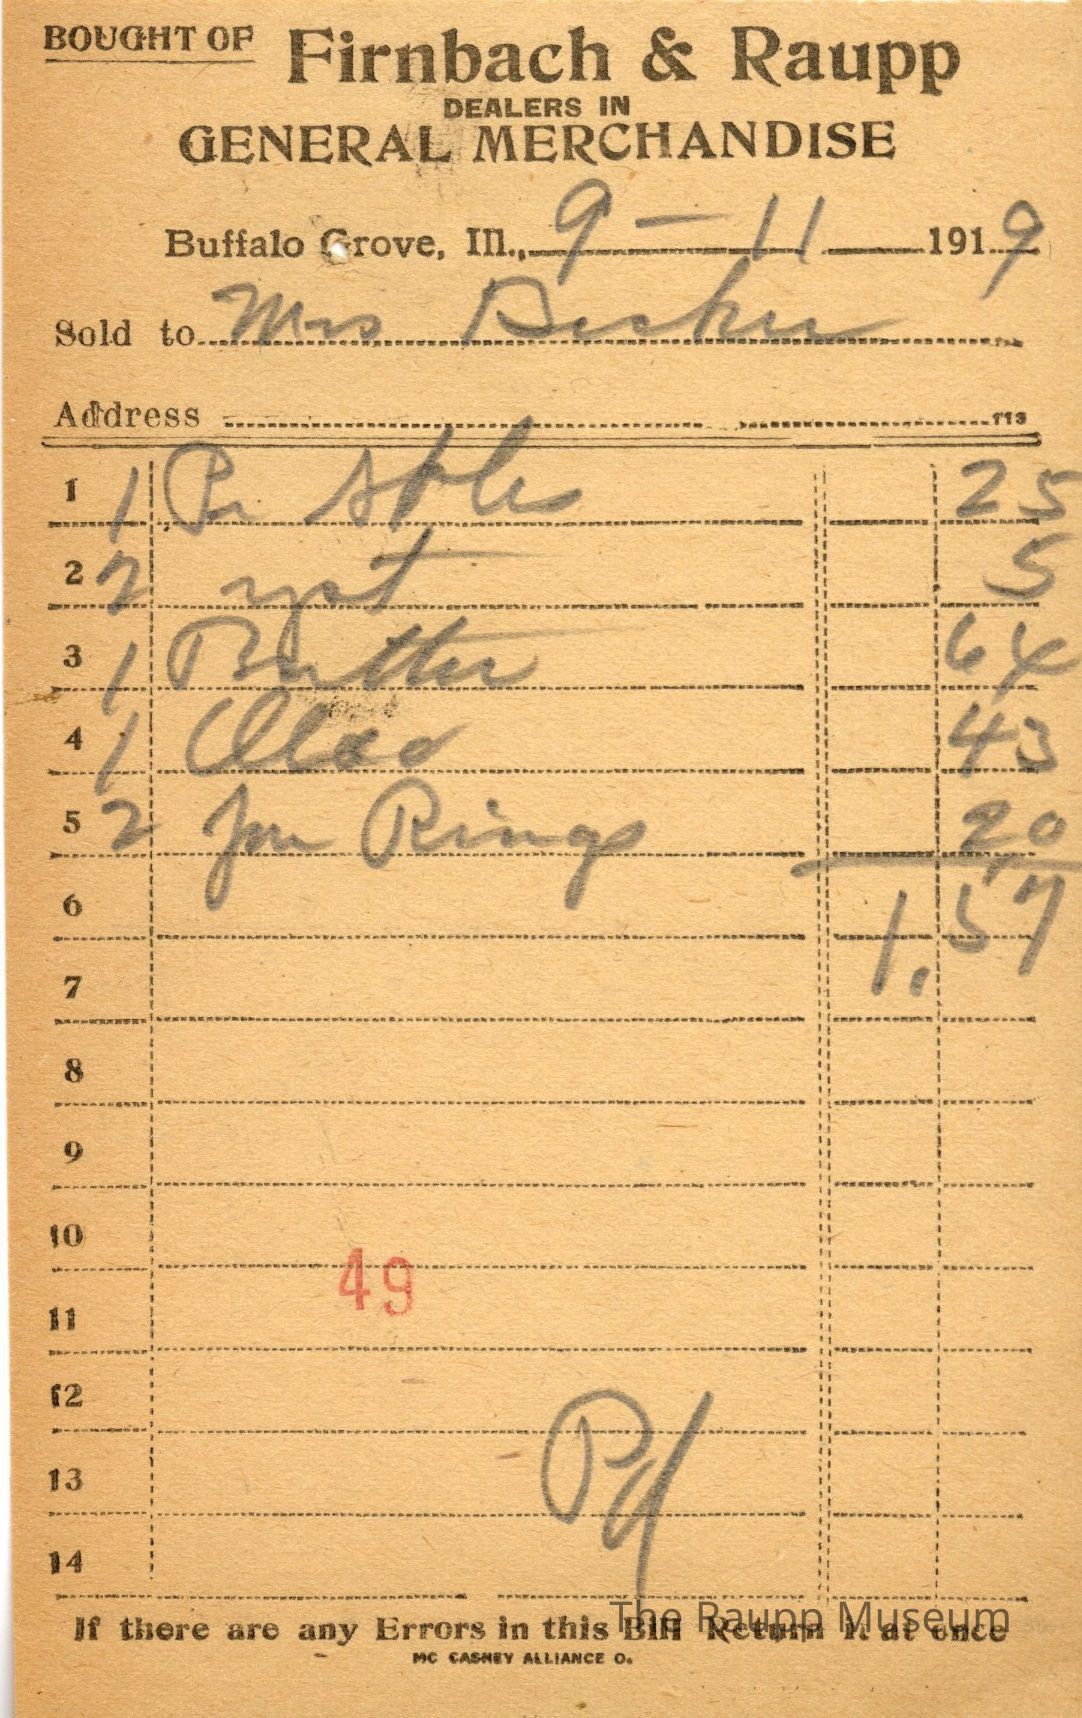 BOUGHT OF Firnbach & Raupp
DEALERS IN
GENERAL MERCHANDISE
Buffalo Grove, Ill., 9 - 11 1919
Sold to Mrs Becker
Address 113
1 1 Pr Soles 25
2 2 yst 5
3 1 Butter 64
4 1 43
5 2 Jar Rings 20
6 1.57
7
8
9
10
49
11
12
13 Pd
14
If there are any Errors in this Bill Return it at once
The Raupp Museum
MC CASKEY ALLIANCE O.